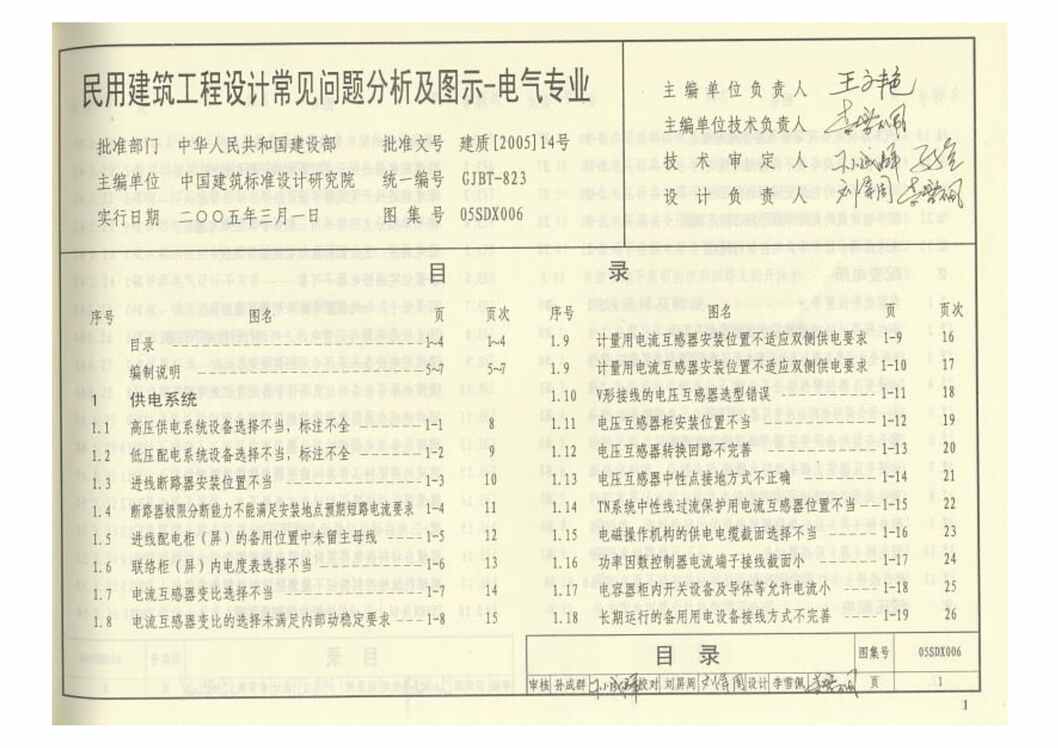 民用建筑工程设计常见问题分析及图示-电气专业
批准部门 中华人民共和国建设部 批准文号 建质[2005]14号
主编单位 中国建筑标准设计研究院 统一编号 GJBT-823
实行日期 二〇〇五年三月一日 图集号 05SDX006
主编单位负责人
主编单位技术负责人
技术审定人
设计负责人
目录
序号 图名 页 页次
目录 1~4 1~4
编制说明 5~7 5~7
1 供电系统
1.1 高压供电系统设备选择不当，标注不全 1-1 8
1.2 低压配电系统设备选择不当，标注不全 1-2 9
1.3 进线断路器安装位置不当 1-3 10
1.4 断路器极限分断能力不能满足安装地点预期短路电流要求 1-4 11
1.5 进线配电柜（屏）的备用位置中未留主母线 1-5 12
1.6 联络柜（屏）内电度表选择不当 1-6 13
1.7 电流互感器变比选择不当 1-7 14
1.8 电流互感器变比的选择未满足内部动稳定要求 1-8 15
序号 图名 页 页次
1.9 计量用电流互感器安装位置不适应双侧供电要求 1-9 16
1.9 计量用电流互感器安装位置不适应双侧供电要求 1-10 17
1.10 V形接线的电压互感器选型错误 1-11 18
1.11 电压互感器柜安装位置不当 1-12 19
1.12 电压互感器转换回路不完善 1-13 20
1.13 电压互感器中性点接地方式不正确 1-14 21
1.14 TN系统中性线过流保护用电流互感器位置不当 1-15 22
1.15 电磁操作机构的供电电缆截面选择不当 1-16 23
1.16 功率因数控制器电流端子接线截面小 1-17 24
1.17 电容器柜内开关设备及导体等允许电流小 1-18 25
1.18 长期运行的备用用电设备接线方式不完善 1-19 26
目录 图集号 05SDX006
审核 孙成群 校对 刘屏周 设计 李雪佩 页 1
1